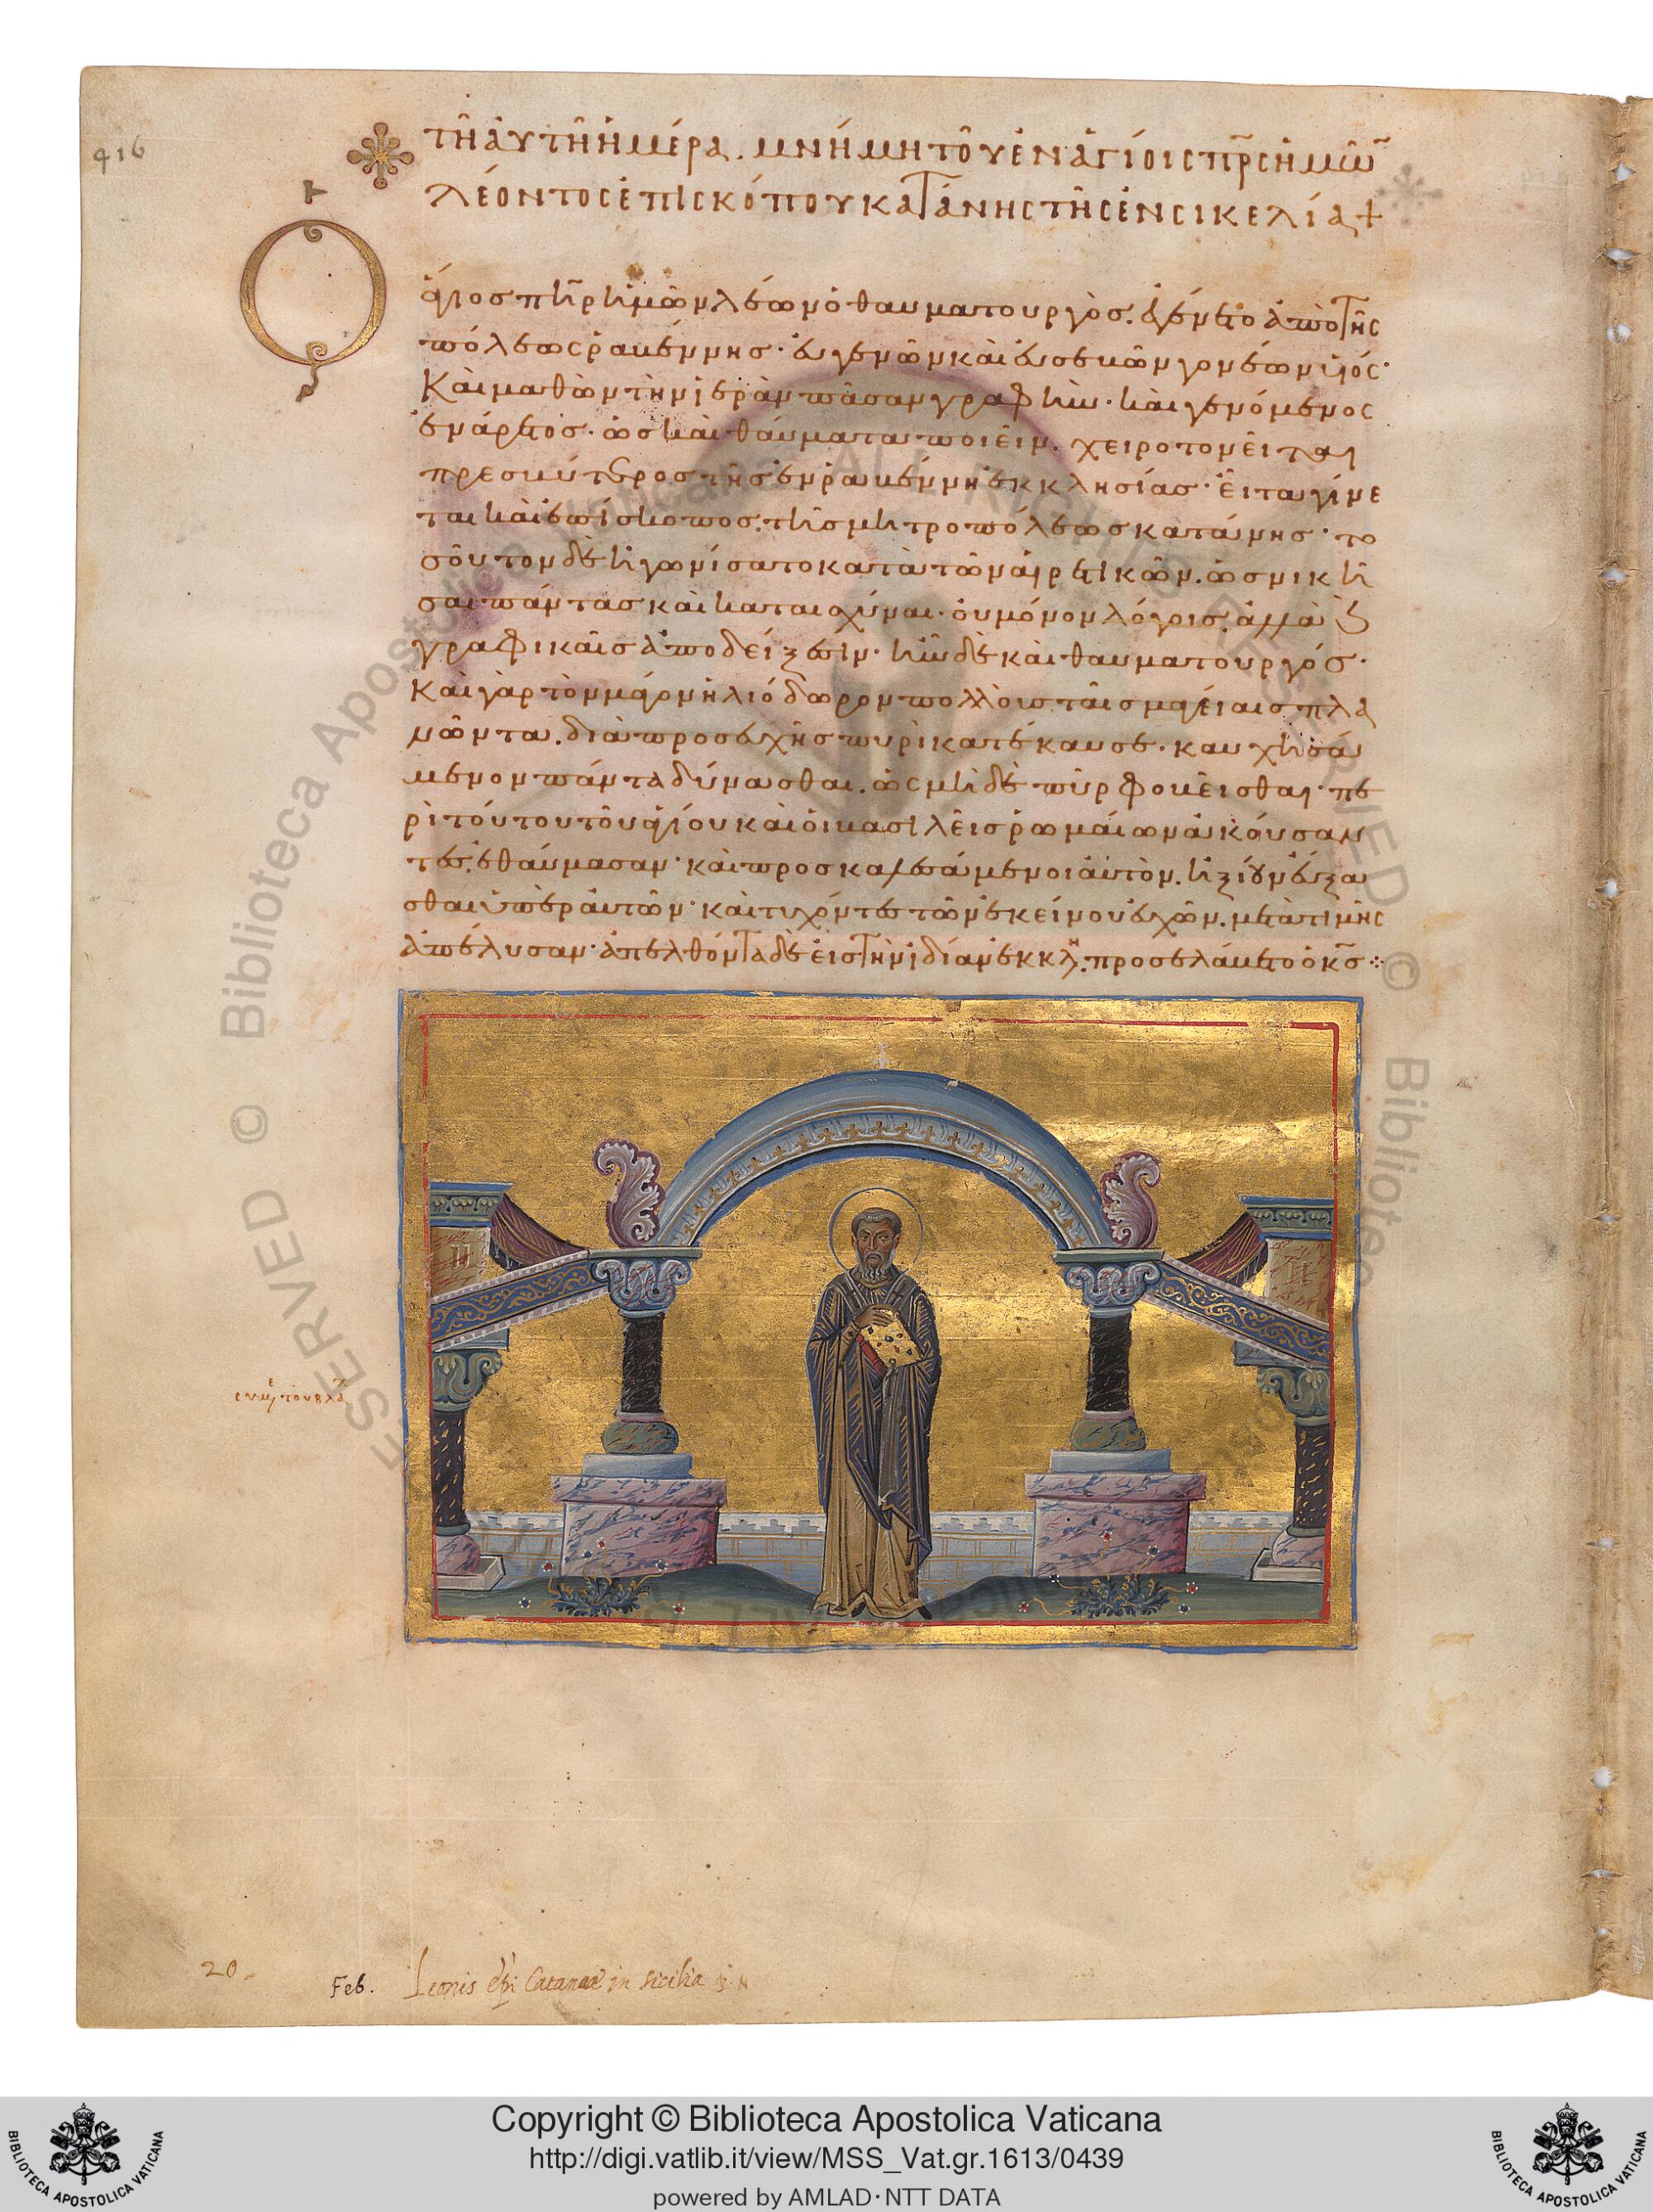 416
τῆ αὐτῆ ἡμέρα. μνήμη τοῦ ἐν ἁγίοις πρς ἡμῶ
λέοντος ἐπισκόπου κατάνης τῆς ἐν σικελία +
Ο
ἅγιος πηρ ἡμῶν λέων ὁ θαυματουργὸς. ἐγένετο ἀπὸ τῆς
πόλεως ῥαβέννης· εὐγενῶν καὶ εὐσεβῶν γονέων υἱός·
Καὶ μαθὼν τὴν ἱερὰν πᾶσαν γραφήν· καὶ γενόμενος
ἐνάρετος· ὡς καὶ θαύματα ποιεῖν. χειροτονεῖται
πρεσβύτερος τῆς ἐν ῥαβέννη ἐκκλησίας· εἶτα γίνε
ται καὶ ἐπίσκοπος. τῆς μητροπόλεως κατάνης· το
σοῦτον δὲ ἠγωνίσατο κατὰ τῶν αἱρετικῶν. ὡς νικῆ
σαι πάντας καὶ καταισχύναι· οὐ μόνον λόγοις. ἀλλὰ ϗ
γραφικαῖς ἀποδείξεσιν· ἦν δὲ καὶ θαυματουργός·
Καὶ γὰρ τὸν μάγον ἡλιόδωρον πολλοὺς ταῖς μαγείαις πλα
νῶντα. διὰ προσευχῆς πυρὶ κατέκαυσε· καυχησά
μενον πάντα δύνασθαι. ὡς μηδὲ πῦρ φοβεῖσθαι· πε
ρὶ τούτου τοῦ ἁγίου καὶ οἱ βασιλεῖς ῥωμαίων ἀκούσαν
τες. ἐθαύμασαν· καὶ προσκαλεσάμενοι αὐτὸν. ἠξίουν εὔξα
σθαι ὑπὲρ αὐτῶν· καὶ τυχόντες τῶν ἐκείνου εὐχῶν. μετὰ τιμῆς
ἀπέλυσαν· ἀπελθόντα δὲ εἰς τὴν ἰδίαν ἐκκλη. προσελάβετο ὁ κς ⁘
τοῦ βλα
20.
Feb. Leonis epi Catanae in Sicilia
Copyright © Biblioteca Apostolica Vaticana
http://digi.vatlib.it/view/MSS_Vat.gr.1613/0439
powered by AMLAD·NTT DATA
BIBLIOTECA APOSTOLICA VATICANA
BIBLIOTECA APOSTOLICA VATICANA